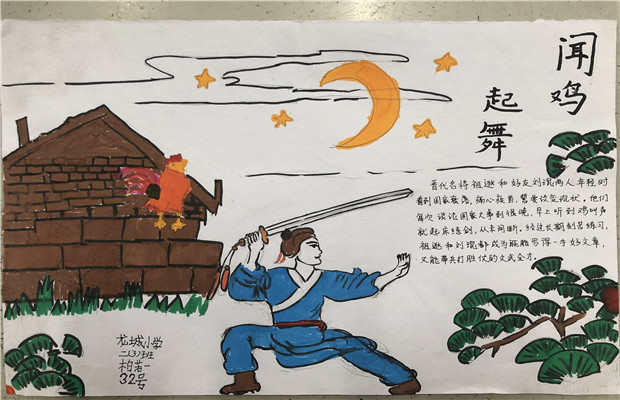 闻鸡
起舞
晋代名将祖逖和好友刘琨两人年轻时
看到国家衰落,痛心疾首,誓要改变现状。他们
每次谈论国家大事到很晚,早上听到鸡叫声
就起床练剑,从未间断。经过长期刻苦练习,
祖逖和刘琨都成为既能写得一手好文章,
又能带兵打胜仗的文武全才。
龙城小学
二(3)班
柏若一
32号